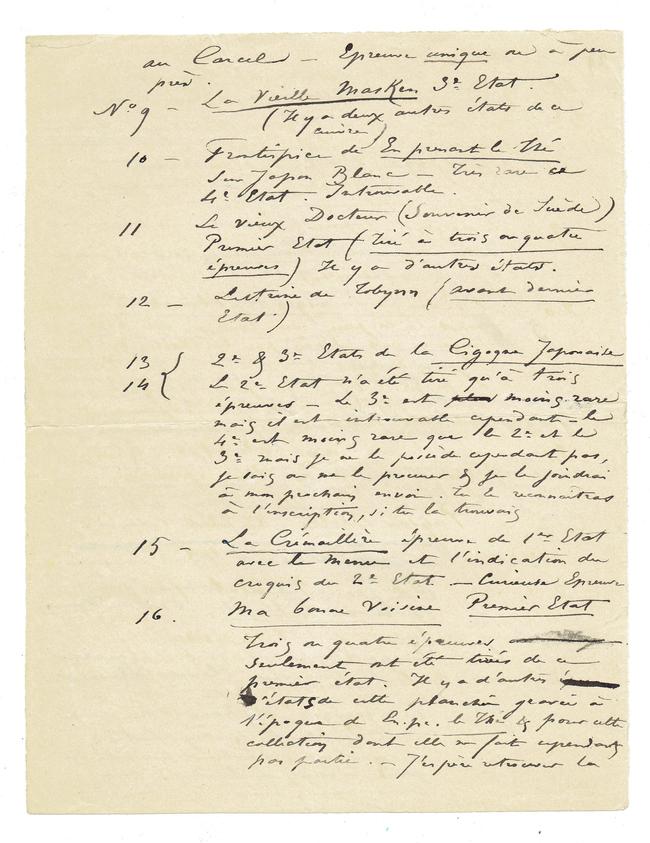 au Carcel — Epreuve unique ou à peu
près.
N° 9 — La Vieille Masken 3e Etat.
(Il y a deux autres états de ce
cuivre)
10 — Frontispice de En prenant le Thé
sur Japon Blanc — Très rare ce
4e Etat. Introuvable.
11 Le vieux Docteur (Souvenir de Suède)
Premier Etat (Tiré à trois ou quatre
épreuves) Il y a d'autres états.
12 — de (avant dernier
Etat.)
13 2e & 3e Etats de la Cigogne Japonaise
14 Le 2e Etat n'a été tiré qu'à trois
épreuves — Le 3e est moins rare
mais il est introuvable cependant — le
4e est moins rare que le 2e et le
3e mais je ne le possède cependant pas,
je sais où me le procurer & je le joindrai
à mon prochain envoi. tu le reconnaitras
à l'inscription, si tu la trouvais
15 — La Crémaillère épreuve de 1er Etat
avec le menu et l'indication du
croquis du 2e Etat. — Curieuse Epreuve
16. Ma bonne Voisine Premier Etat
Trois ou quatre épreuves
seulement ont été tirées de ce
premier état. Il y a d'autres
états de cette planche gravée à
l'époque de En. pr. le Thé & pour cette
collection dont elle ne fait cependant
pas partie. — J'espère retrouver la